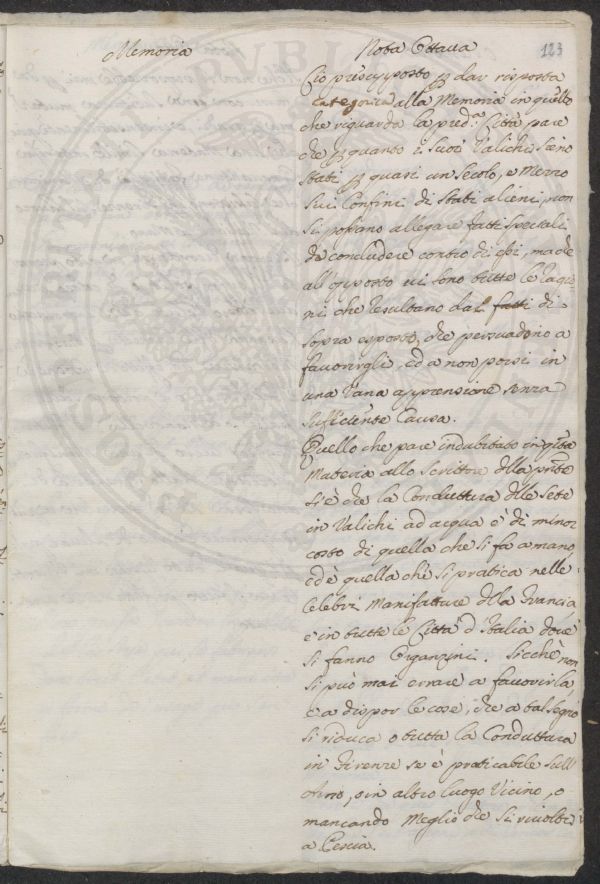 Memoria
Nota Ottava
123
Ciò presupposto p dar risposta
categorica alla Memoria in quello
che riguarda la pred.a Città pare
che p quanto i suoi Valichi sieno
stati p quasi un secolo, e Mezzo
sui Confini di Stati alieni, non
si possano allegare fatti speciali
da concludere contro di essi, ma che
all'opposto vi sono tutte le ragio
ni che resultano dal fatti di
sopra esposto, che persuadono a
favorirgli, ed a non porsi in
una vana apprensione senza
sufficiente Causa.
Quello che pare indubitato in qta
Materia allo Scrittore dlla pnte
si è che la Conduttura dlle Sete
in Valichi ad acqua è di minor
costo di quella che si fa a mano,
ed è quella che si pratica nelle
celebri Manifatture dlla Francia
e in tutte le Città d'Italia dove
si fanno Organzini. Sicchè non
si può mai errare a favorirla,
e a dispor le cose, che a tal segno
si riduca o tutta la Conduttura
in Firenze se è praticabile sull'
Arno, o in altro luogo Vicino, o
mancando Meglio che si rivolti
a Pescia.